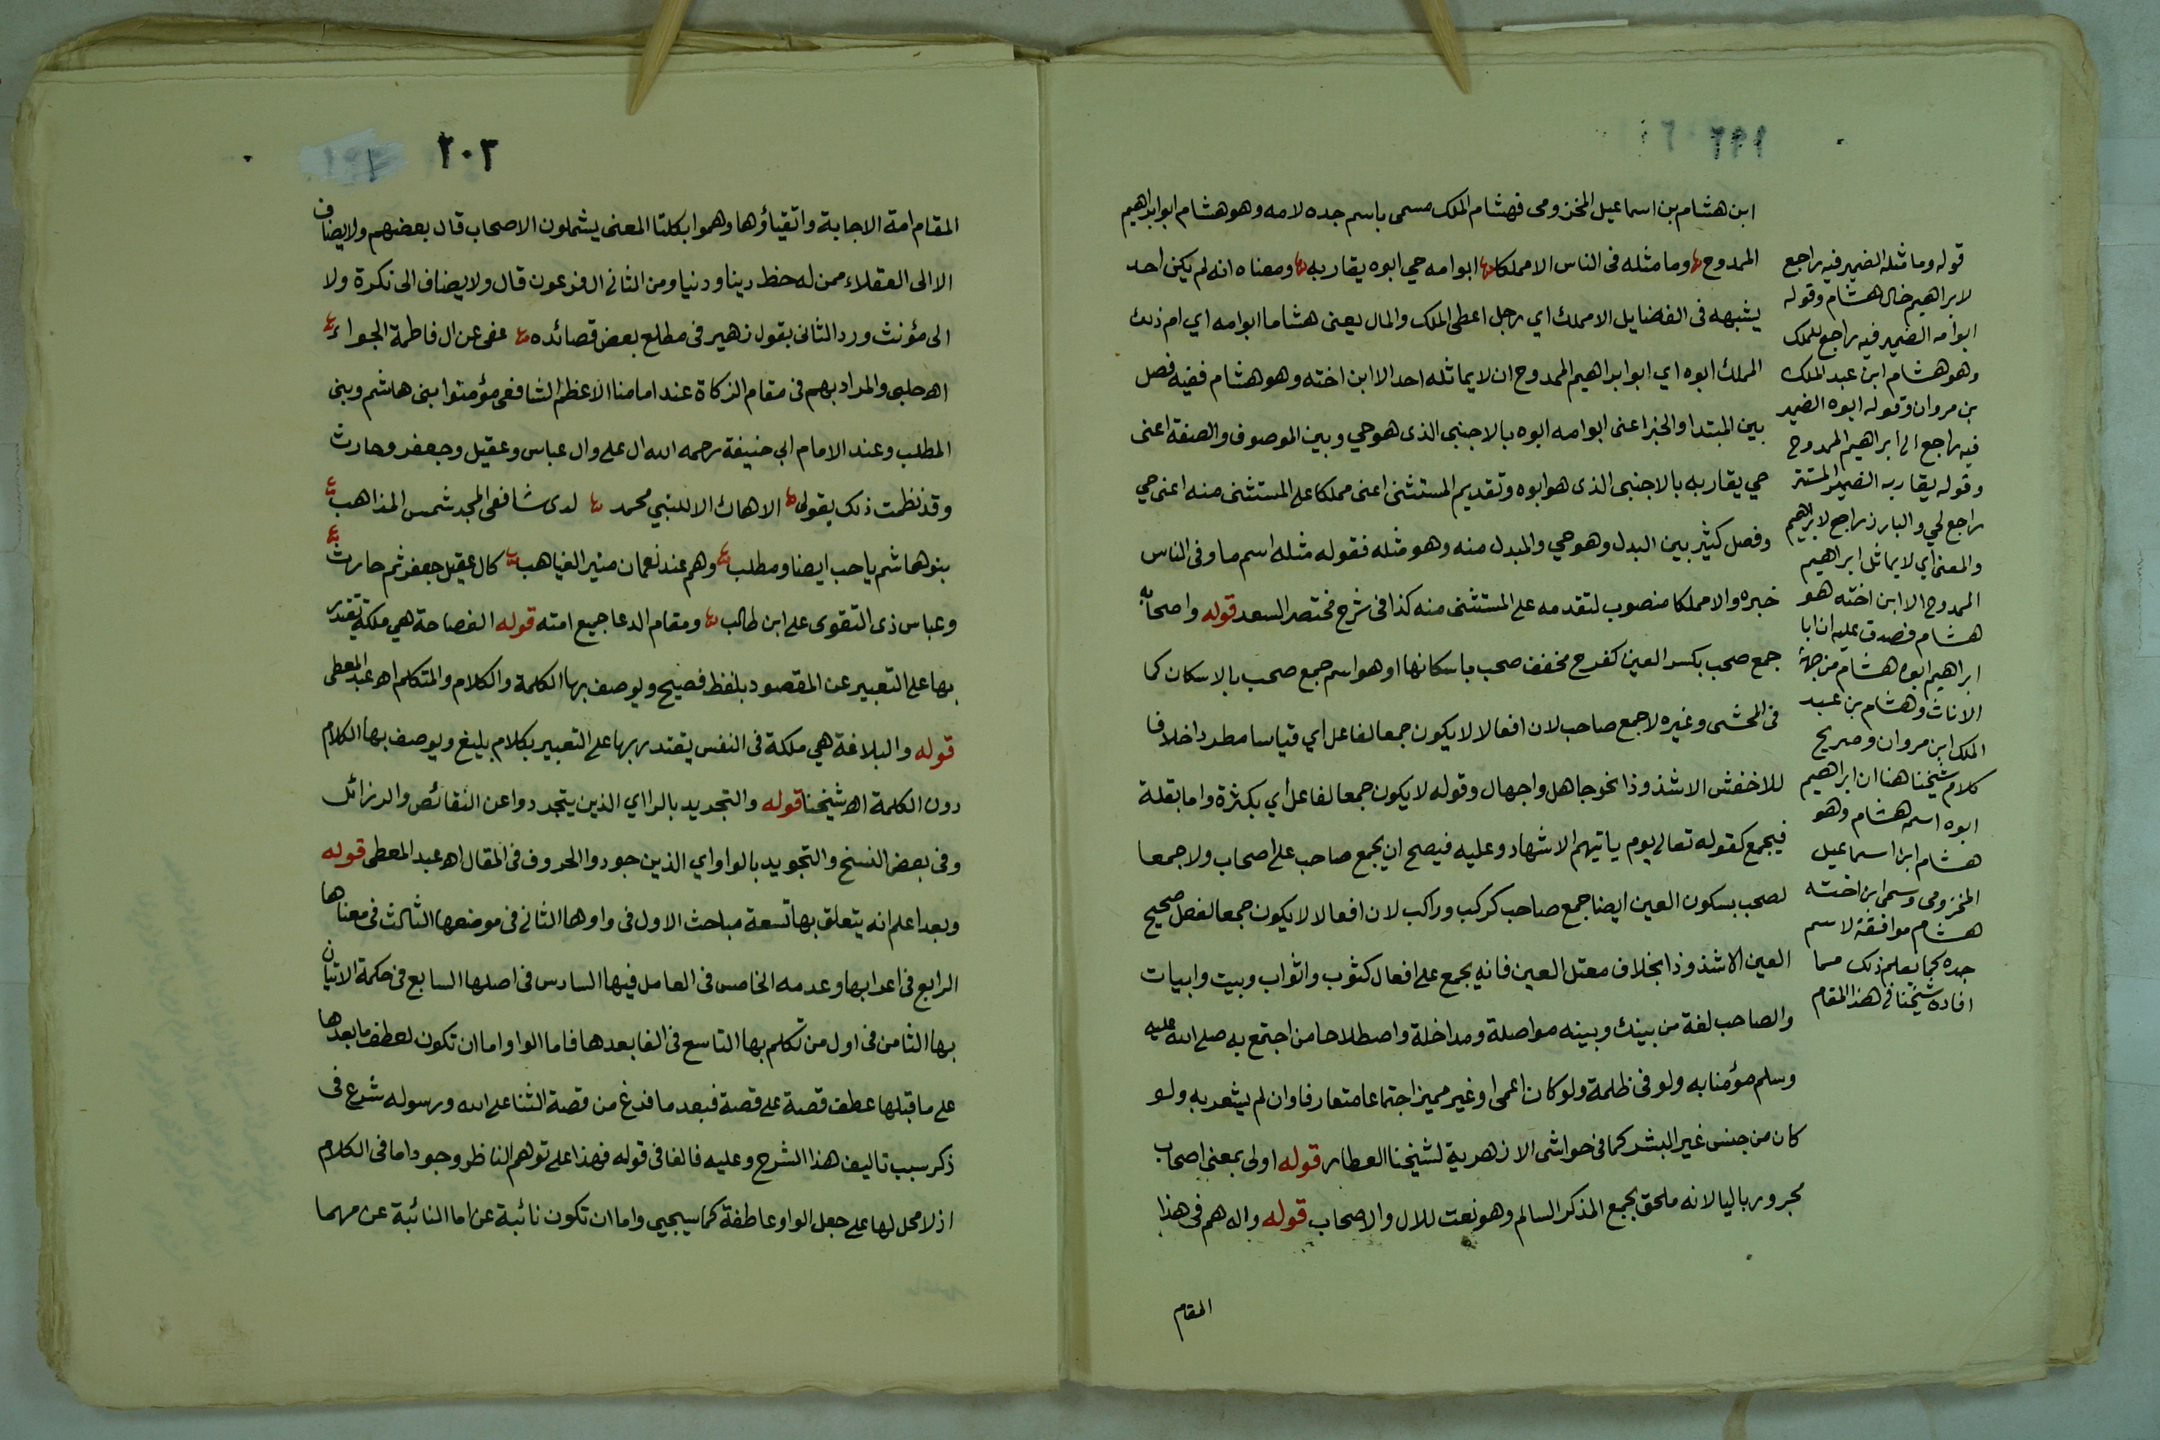 ابن هشام بن اسماعيل المخزومى فهشام الملك مسمى باسم جده لامه وهو هشام ابو ابراهيم
الممدوح وما مثله فى الناس الا مملكا ابو امه حي ابوه يقاربه ومعناه انه لم يكن احد
يشبهه فى الفضايل الا مملك اي رجل اعطى الملك والمال يعنى هشاما ابو امه اي ام ذلك
المملك ابوه اي ابو ابراهيم الممدوح ان لا يماثله احد الا ابن اخته وهو هشام ففيه فصل
بين المبتدا والخبر اعنى ابو امه ابوه بالاجنبى الذى هو حي وبين الموصوف والصفة اعنى
حي يقاربه بالاجنبى الذى هو ابوه وتقديم المستثنى اعنى مملكا على المستثنى منه اعنى حي
وفصل كثير بين البدل وهو حي والمبدل منه وهو مثله فقوله مثله اسم ما وفى الناس
خبره والا مملكا منصوب لتقدمه على المستثنى منه كذا فى شرح مختصر السعد قوله واصحابه
جمع صحب بكسر العين كفرح مخفف صحب باسكانها او هو اسم جمع صحب بالاسكان كما
فى المحشى وغيره لا جمع صاحب لان افعالا لا يكون جمعا لفاعل اي قياسا مطردا خلافا
للاخفش الا شذوذا نحو جاهل واجهال وقوله لا يكون جمعا لفاعل أي بكثرة واما بقلة
فيجمع كقوله تعالى يوم ياتيهم الاشهاد وعليه فيصح ان يجمع صاحب على اصحاب ولا جمعا
لصحب بسكون العين ايضا جمع صاحب كركب وراكب لان افعالا لا يكون جمعا لفعل صحيح
العين الا شذوذا بخلاف معتل العين فانه يجمع على افعال كثوب واثواب وبيت وابيات
والصاحب لغة من بينك وبينه مواصلة ومداخلة واصطلاحا من اجتمع به صلى الله عليه
وسلم مؤمنا به ولو فى ظلمة ولو كان اعمى او غير مميز اجتماعا متعارفا وان لم يشعر به ولو
كان من جنس غير البشر كما فى حواشى الازهرية لشيخنا العطار قوله اولى بمعنى اصحاب
مجرور باليا لانه ملحق بجمع المذكر السالم وهو نعت للال والاصحاب قوله واله هم فى هذا
المقام
قوله وما مثله الضمير فيه راجع
لابراهيم خال هشام وقوله
ابو امه الضمير فيه راجع للملك
وهو هشام ابن عبد الملك
بن مروان وقوله ابوه الضمير
فيه راجع الى ابراهيم الممدوح
وقوله يقاربه الضمير المستتر
راجع لحي والبارز راجع لابراهيم
والمعنى اي لا يماثل ابراهيم
الممدوح الا ابن اخته هو
هشام فصدق عليه ان ابا
ابراهيم ابوه هشام من جهة
الاناث وهشام بن عبد
الملك ابن مروان وصريح
كلام شيخنا هنا ان ابراهيم
ابوه اسمه هشام وهو
هشام ابن اسماعيل
المخزومى وسمى ابن اخته
هشام موافقة لاسم
جده كما يعلم ذلك مما
افاده شيخنا فى هذا المقام
٢٠٢
المقام امة الاجابة واتقياؤها وهموا بكلتا المعنى يشملون الاصحاب قال بعضهم ولا يضاف
الا الى العقلاء ممن له حظ دينا ودنيا ومن الثانى ال فرعون قال ولا يضاف الى نكرة ولا
الى مؤنث ورد الثانى بقول زهير فى مطلع بعض قصائده عفى عن ال فاطمة الجواء
اهـ حلبى والمراد بهم فى مقام الزكاة عند امامنا الاعظم الشافعى مؤمنوا بنى هاشم وبنى
المطلب وعند الامام ابي حنيفة رحمه الله ال على وال عباس وعقيل وجعفر وحارث
وقد نظمت ذلك بقولى الا هاك الا للنبي محمد لدى شافعى المجد شمس المذاهب
بنو هاشم ياحب ايضا ومطلب وهم عند نعمان منير الغياهب كال عقيل جعفر ثم حارث
وعباس ذى التقوى على ابن طالب ومقام الدعا جميع امته قوله الفصاحة هي ملكة يقتدر
بها على التعبير عن المقصود بلفظ فصيح ويوصف بها الكلمة والكلام والمتكلم اهـ عبد المعطى
قوله والبلاغة هي ملكة فى النفس يقتدر بها على التعبير بكلام بليغ ويوصف بها الكلام
دون الكلمة اهـ شيخنا قوله والتجريد بالرا اي الذين يتجردوا عن النقائص والرزائل
وفى بعض النسخ والتجويد بالواو اي الذين جودوا الحروف فى المقال اهـ عبد المعطى قوله
وبعد اعلم انه يتعلق بها تسعة مباحث الاول فى واوها الثانى فى موضعها الثالث فى معناها
الرابع فى اعرابها وعدمه الخامس فى العامل فيها السادس فى اصلها السابع فى حكمة الاتيان
بها الثامن فى اول من تكلم بها التاسع فى الفا بعدها فاما الواو اما ان تكون لعطف ما بعدها
على ما قبلها عطف قصة على قصة فبعد ما فرغ من قصة الثنا على الله ورسوله شرع فى
ذكر سبب تاليف هذا الشرح وعليه فالفا فى قوله فهذا على توهم الناظر وجود اما فى الكلام
اذ لا محل لها على جعل الواو عاطفة كما سيجيى واما ان تكون نائبة عن اما النائبة عن مهما